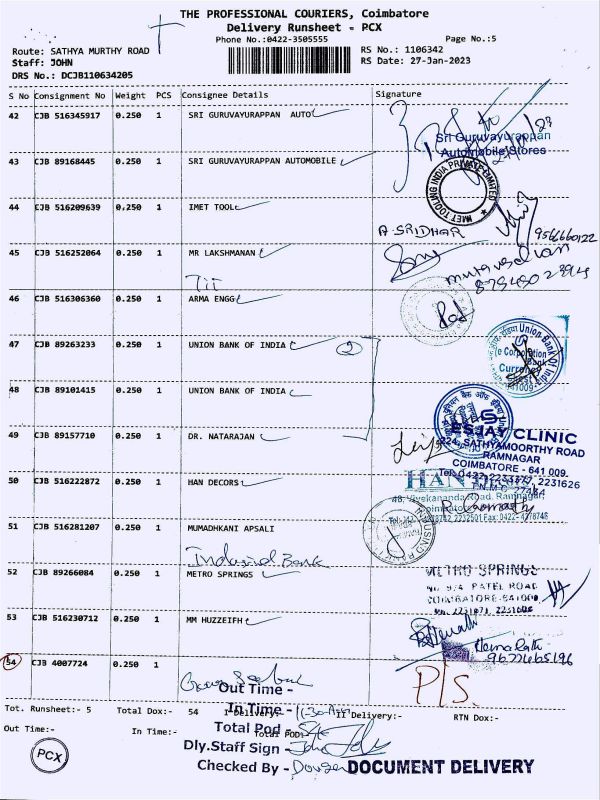 THE PROFESSIONAL COURIERS, Coimbatore
Delivery Runsheet - PCX
Phone No.:0422-3505555
Page No.:5
Route: SATHYA MURTHY ROAD
RS No.: 1106342
Staff: JOHN
RS Date: 27-Jan-2023
DRS No.: DCJB110634205
S No Consignment No Weight PCS Consignee Details Signature
42 CJB 516345917 0.250 1 SRI GURUVAYURAPPAN AUTO
Sri Guruvayurappan
Automobile Stores
43 CJB 89168445 0.250 1 SRI GURUVAYURAPPAN AUTOMOBILE
IMET TOOLING INDIA PRIVATE LIMITED
44 CJB 516209639 0.250 1 IMET TOOL
A. SRIDHAR
9566660122
45 CJB 516252064 0.250 1 MR LAKSHMANAN
46 CJB 516306360 0.250 1 ARMA ENGG
47 CJB 89263233 0.250 1 UNION BANK OF INDIA
2
Union Bank Of India
48 CJB 89101415 0.250 1 UNION BANK OF INDIA
49 CJB 89157710 0.250 1 DR. NATARAJAN
ESJAY CLINIC
224, SATHYAMOORTHY ROAD
RAMNAGAR
COIMBATORE - 641 009.
50 CJB 516222872 0.250 1 HAN DECORS
48, Vivekananda Road, Ramnagar,
51 CJB 516281207 0.250 1 MUMADHKANI APSALI
Indusind Bank
52 CJB 89266084 0.250 1 METRO SPRINGS
METRO SPRINGS
PATEL ROAD
COIMBATORE-641009
53 CJB 516230712 0.250 1 MM HUZZEIFH
Hemalatha
9677465196
54 CJB 4007724 0.250 1
P/S.
Out Time -
Tot. Runsheet:- 5 Total Dox:- 54 I Delivery:- II Delivery:- RTN Dox:-
In Time -
Out Time:- In Time:- Total POD:-
Total Pod -
Dly.Staff Sign -
Checked By -
PCX
DOCUMENT DELIVERY